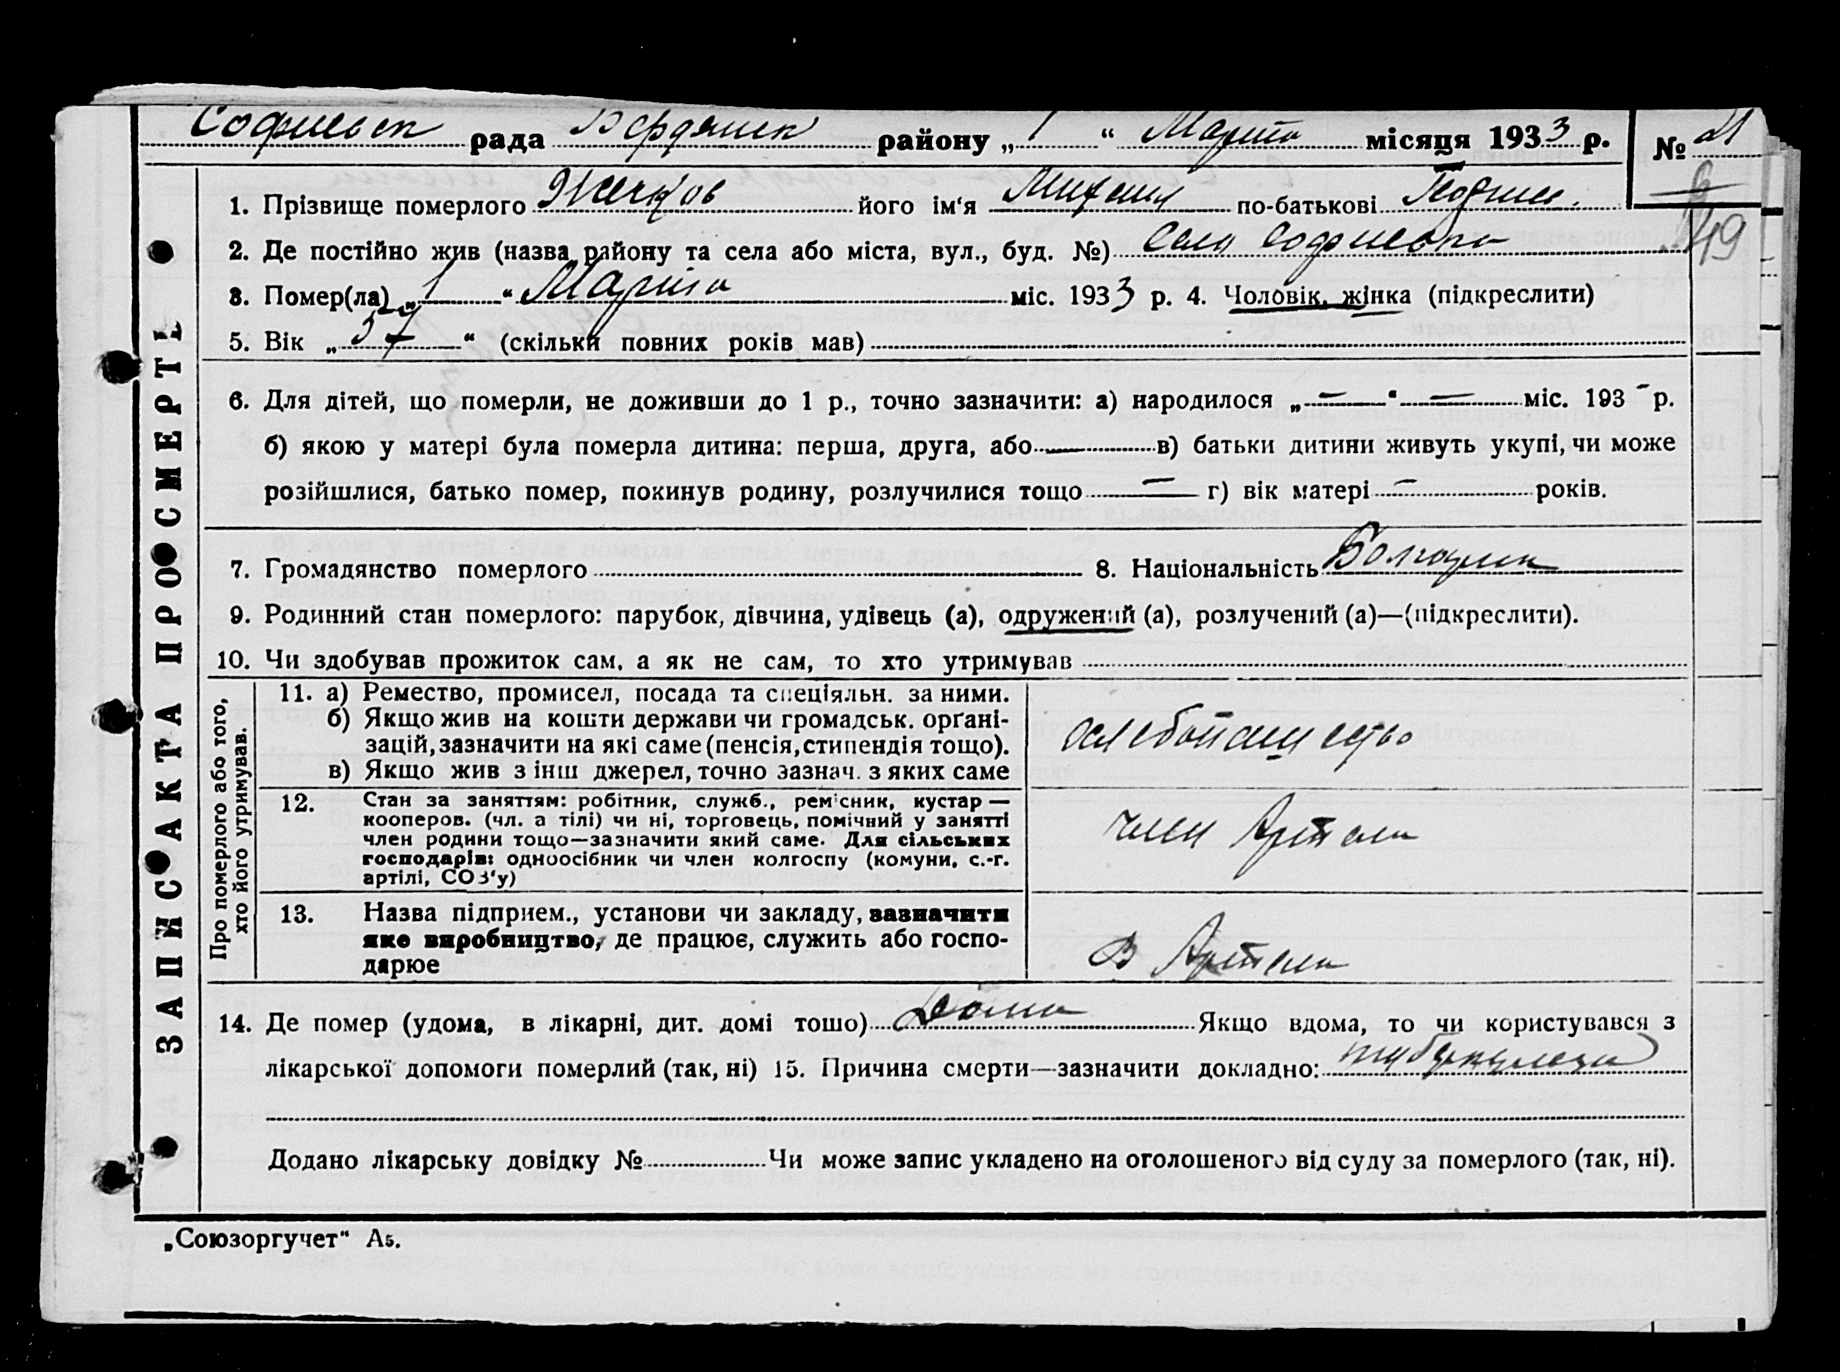 Софиевск рада Бердянск району „1“ Марта місяця 1933 р. № 21
1. Прізвище померлого Жеков його ім‘я Михаил по-батькові
49
2. Де постійно жив (назва району та села або міста, вул., буд. №) Село Софиевка
3. Помер(ла) „1“ Марта міс. 1933 р. 4. Чоловік, жінка (підкреслити)
5. Вік „57“ (скільки повних років мав)
6. Для дітей, що померли, не доживши до 1 р., точно зазначити: а) народилося „—“ — міс. 193- р.
б) якою у матері була померла дитина: перша, друга, або — в) батьки дитини живуть укупі, чи може
розійшлися, батько помер, покинув родину, розлучилися тощо — г) вік матері — років.
7. Громадянство померлого 8. Національність Болгарин
9. Родинний стан померлого: парубок, дівчина, удівець (а), одружений (а), розлучений (а)—(підкреслити).
10. Чи здобував прожиток сам, а як не сам, то хто утримував
Про померлого або того,
хто його утримував.
11. а) Ремество, промисел, посада та спеціяльн. за ними.
б) Якщо жив на кошти держави чи громадськ. орґані-
зацій, зазначити на які саме (пенсія, стипендія тощо).
в) Якщо жив з інш джерел, точно зазнач. з яких саме
12. Стан за заняттям: робітник, служб., ремісник, кустар —
кооперов. (чл. а тілі) чи ні, торговець, помічний у занятті
член родини тощо—зазначити який саме. Для сільських
господарів: одноосібник чи член колгоспу (комуни, с.-г.
артілі, СОЗ'у)
член Артели
13. Назва підприєм., установи чи закладу, зазначити
яке виробництво, де працює, служить або госпо-
дарює
В Артели
14. Де помер (удома, в лікарні, дит. домі тощо) Дома Якщо вдома, то чи користувався з
лікарської допомоги померлий (так, ні) 15. Причина смерти—зазначити докладно: туберкулеза
Додано лікарську довідку № Чи може запис укладено на оголошеного від суду за померлого (так, ні).
ЗАПИС АКТА ПРО СМЕРТЬ
„Союзоргучет“ А5.